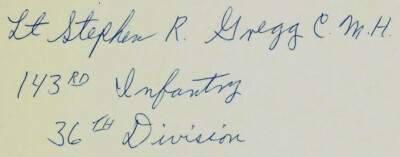 Lt Stephen R. Gregg C.M.H.
143RD Infantry
36TH Division